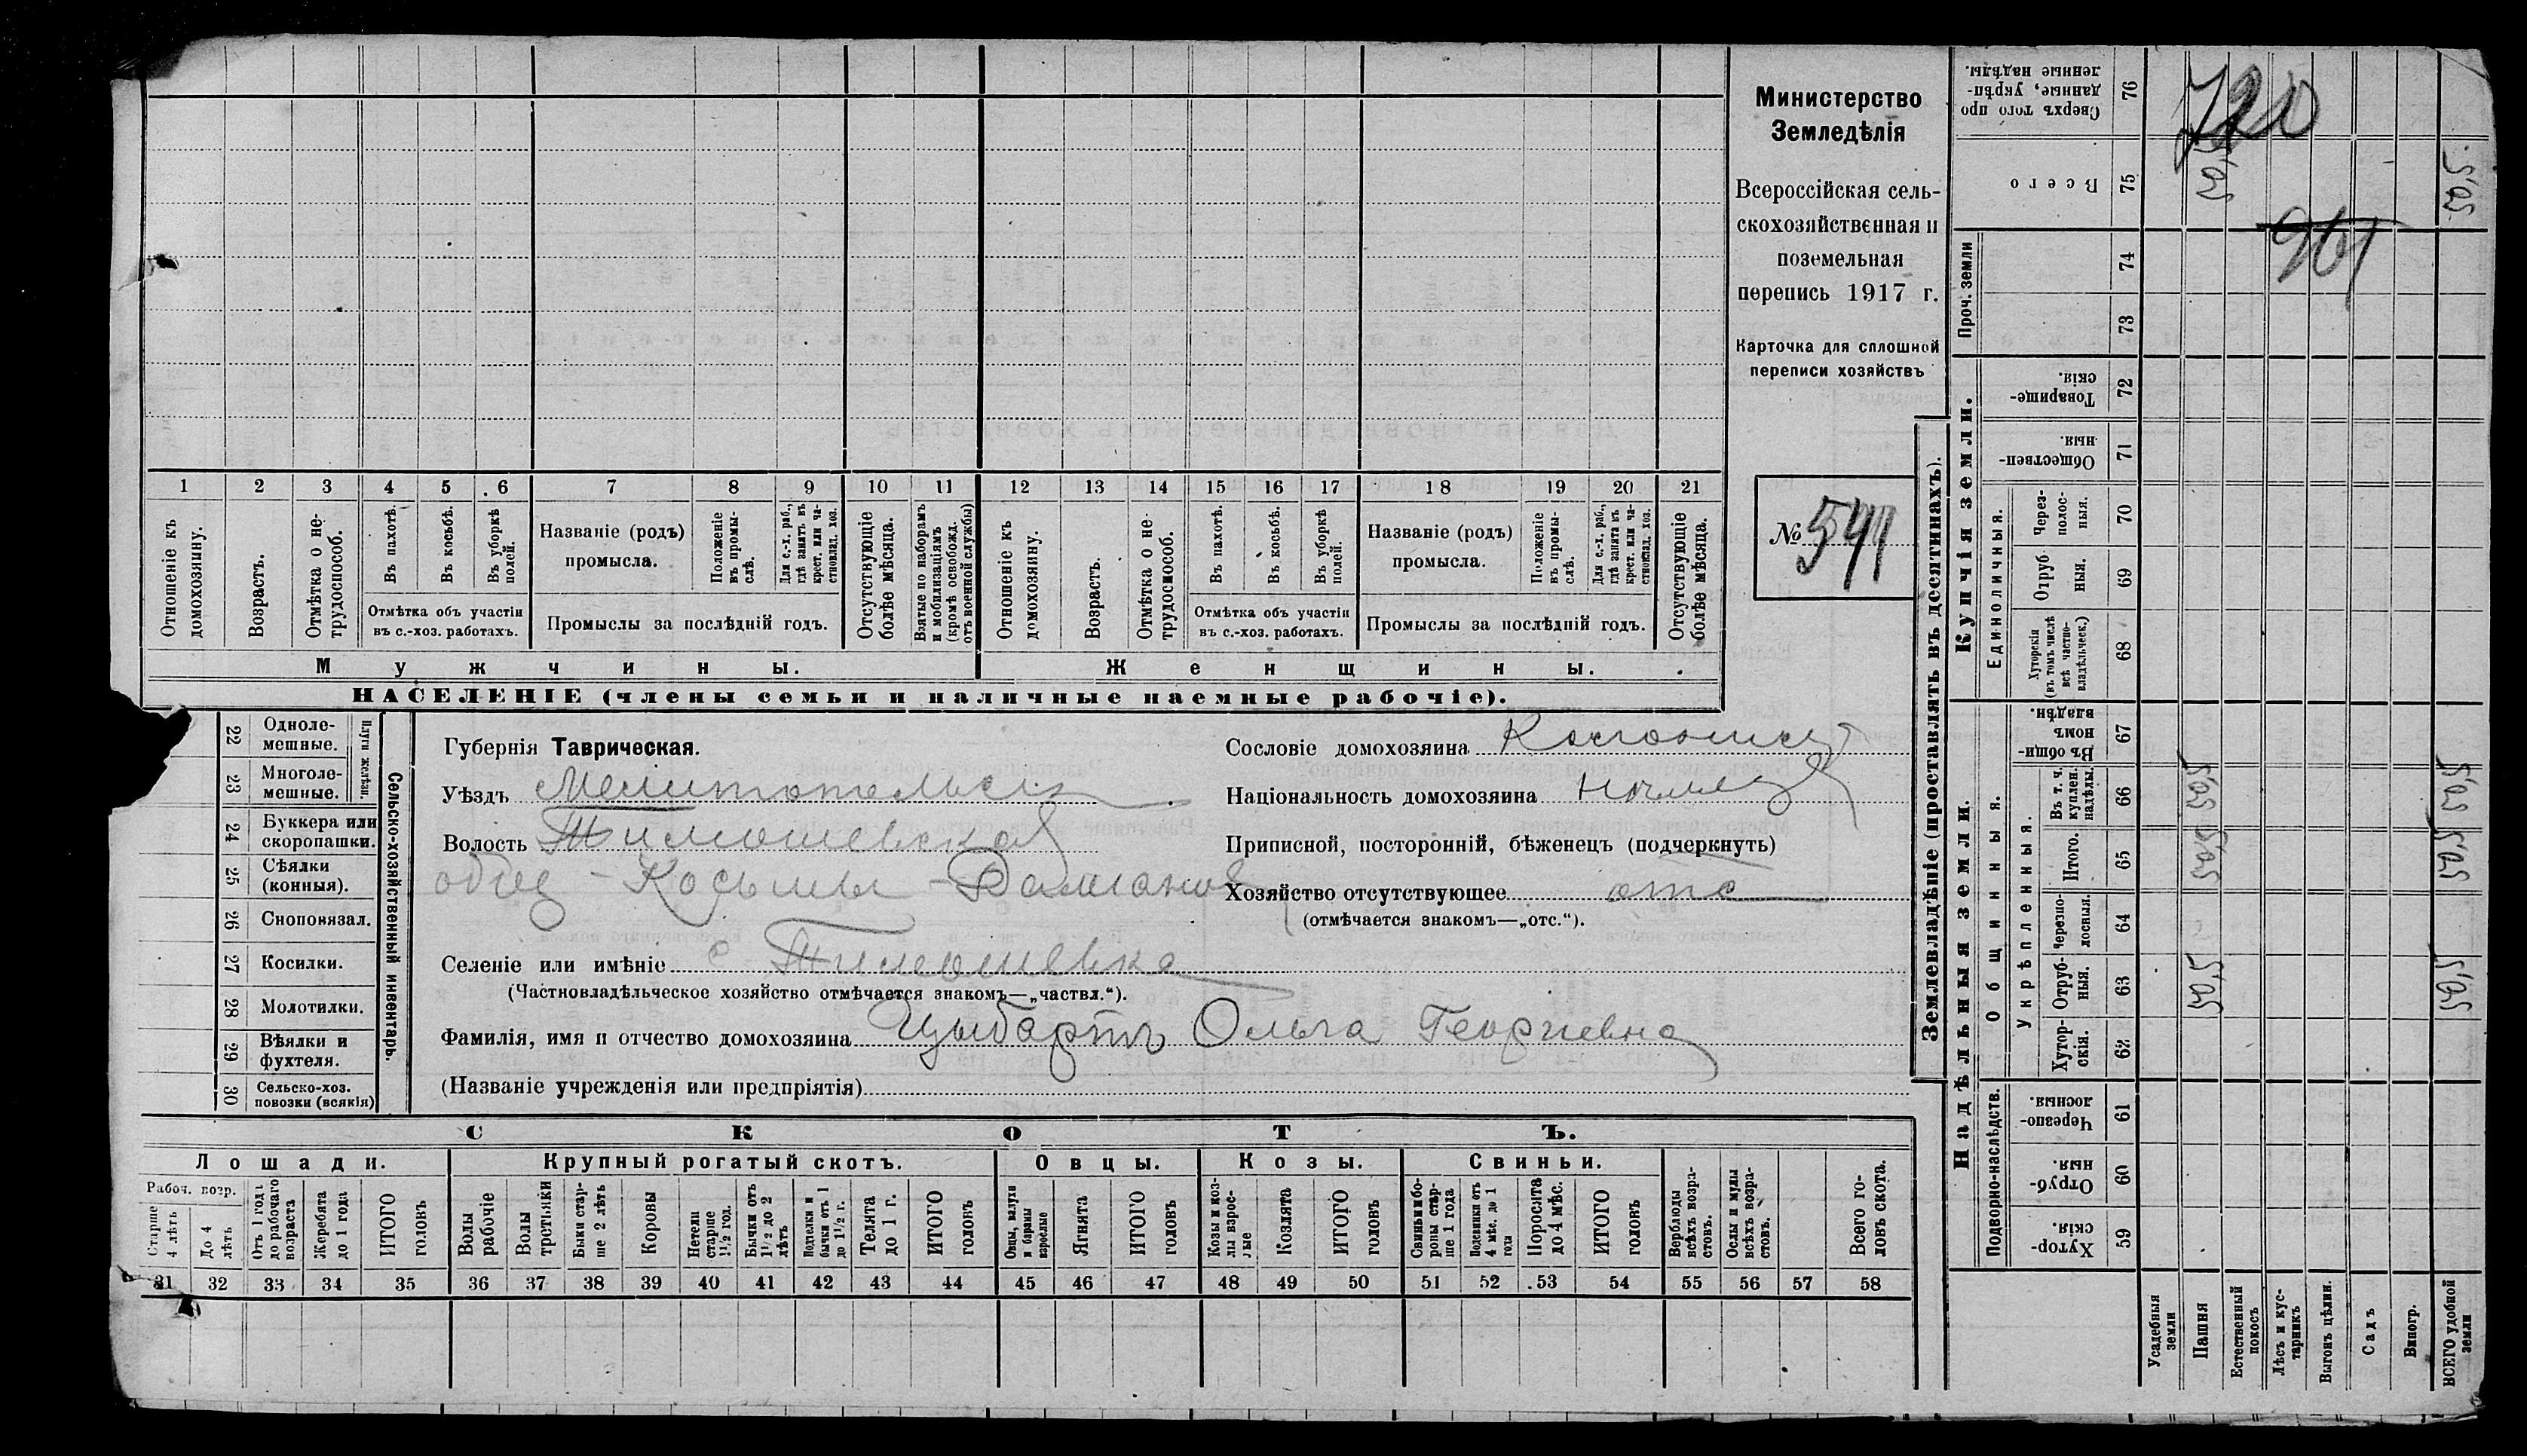 Министерство
Земледѣлія
Всероссійская сель-
скохозяйственная и
поземельная
перепись 1917 г.
Карточка для сплошной
переписи хозяйствъ
№ 541
1 2 3 4 5 6 7 8 9 10 11 12 13 14 15 16 17 18 19 20 21
Отношеніе къ домохозяину.
Возрастъ.
Отмѣтка о не-трудоспособ.
Въ пахотѣ.
Въ косьбѣ.
Въ уборкѣ полей.
Отмѣтка объ участіи
въ с.-хоз. работахъ.
Названіе (родъ)
промысла.
Положеніе въ промы-слѣ.
Для с.-х. раб., гдѣ занятъ въ крест. или ча-стновлад. хоз.
Промыслы за послѣдній годъ.
Отсутствующіе болѣе мѣсяца.
Взятые по наборамъ и мобилизаціямъ (кромѣ освобожд. отъ военной службы)
Отношеніе къ домохозяину.
Возрастъ.
Отмѣтка о не-трудоспособ.
Въ пахотѣ.
Въ косьбѣ.
Въ уборкѣ полей.
Отмѣтка объ участіи
въ с.-хоз. работахъ.
Названіе (родъ)
промысла.
Положеніе въ промы-слѣ.
Для с.-х. раб., гдѣ занята въ крест. или ча-стновлад. хоз.
Промыслы за послѣдній годъ.
Отсутствующіе болѣе мѣсяца.
Мужчины.
Женщины.
НАСЕЛЕНІЕ (члены семьи и наличные наемные рабочіе).
Сельско-хозяйственный инвентарь.
Плуги желѣзн.
22 Одноле-мешные.
23 Многоле-мешные.
24 Буккера или скоропашки.
25 Сѣялки (конныя).
26 Сноповязал.
27 Косилки.
28 Молотилки.
29 Вѣялки и фухтеля.
30 Сельско-хоз. повозки (всякія)
Губернія Таврическая.
Уѣздъ Мелитопольскій
Волость Тимошевская
общ – Косьмы – Даміанов
Селеніе или имѣніе с Тимошевка
(Частновладѣльческое хозяйство отмѣчается знакомъ—„частвл.“).
Фамилія, имя и отчество домохозяина Цыбартъ Ольга Георгіевна
(Названіе учрежденія или предпріятія)
Сословіе домохозяина Колонист
Національность домохозяина
Приписной, посторонній, бѣженецъ (подчеркнуть)
Хозяйство отсутствующее отс
(отмѣчается знакомъ—„отс.“).
СКОТЪ.
Лошади.
Рабоч. возр.
Старше 4 лѣтъ
До 4 лѣтъ
Отъ 1 года до рабочаго возраста
Жеребята до 1 года
ИТОГО головъ
Крупный рогатый скотъ.
Волы рабочіе
Волы третьяки
Быки стар-ше 2 лѣтъ
Коровы
Нетели старше 1½ год.
Бычки отъ 1½ до 2 лѣтъ
Подтелки и бычки отъ 1 до 1½ г.
Телята до 1 г.
ИТОГО головъ
Овцы.
Овцы, валухи и бараны взрослые
Ягнята
ИТОГО головъ
Козы.
Козы и коз-лы взрос-лые
Козлята
ИТОГО головъ
Свиньи.
Свиньи и бо-ровы стар-ше 1 года
Подсвинки отъ 4 мѣс. до 1 года
Поросята до 4 мѣс.
ИТОГО головъ
Верблюды всѣхъ возра-стовъ.
Ослы и мулы всѣхъ возра-стовъ.
Всего го-ловъ скота.
31 32 33 34 35 36 37 38 39 40 41 42 43 44 45 46 47 48 49 50 51 52 53 54 55 56 57 58
Землевладѣніе (проставлять въ десятинахъ).
Надѣльныя земли.
Подворно-наслѣдств.
59 Хутор-скія.
60 Отруб-ныя.
61 Черезпо-лосныя.
Общинныя.
Укрѣпленныя.
62 Хутор-скія.
63 Отруб-ныя.
64 Черезпо-лосныя.
65 Итого.
66 Въ т. ч. куплен. надѣлы.
67 Въ общи-нномъ владѣн.
Купчія земли.
Единоличныя.
68 Хуторскія (въ томъ числѣ всѣ частно-владѣльческ.)
69 Отруб ныя.
70 Через-полос-ныя.
71 Обществен-ныя.
72 Товарище-скія.
Проч. земли
73
74
75 Всего
76 Сверхъ того про данные, укрѣп-ленные надѣлы.
Усадебныя земли
Пашня
Естественный покосъ
Лѣсъ и кус-тарникъ
Выгонъ цѣлин.
Садъ
Виногр.
ВСЕГО удобной земли
720
961